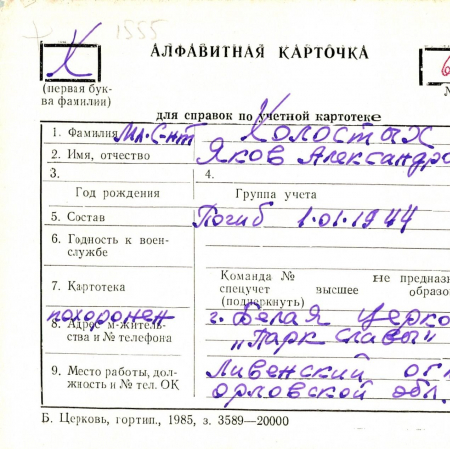 1555
Х
АЛФАВИТНАЯ КАРТОЧКА
6
(первая бук-
ва фамилии)
№
для справок по учетной картотеке
1. Фамилия Мл. С-нт Холостых
2. Имя, отчество Яков Александро
3.
4.
Год рождения
Группа учета
5. Состав Погиб 1.01.1944
6. Годность к воен-
службе
Команда № не предназн
7. Картотека
спецучет высшее образо
(подчеркнуть)
похоронен г. Белая Церко
8. Адрес м-житель-
ства и № телефона „Парк славы"
9. Место работы, дол-
жность и № тел. ОК
Ливенский
орловской обл.
Б. Церковь, гортип., 1985, з. 3589—20000